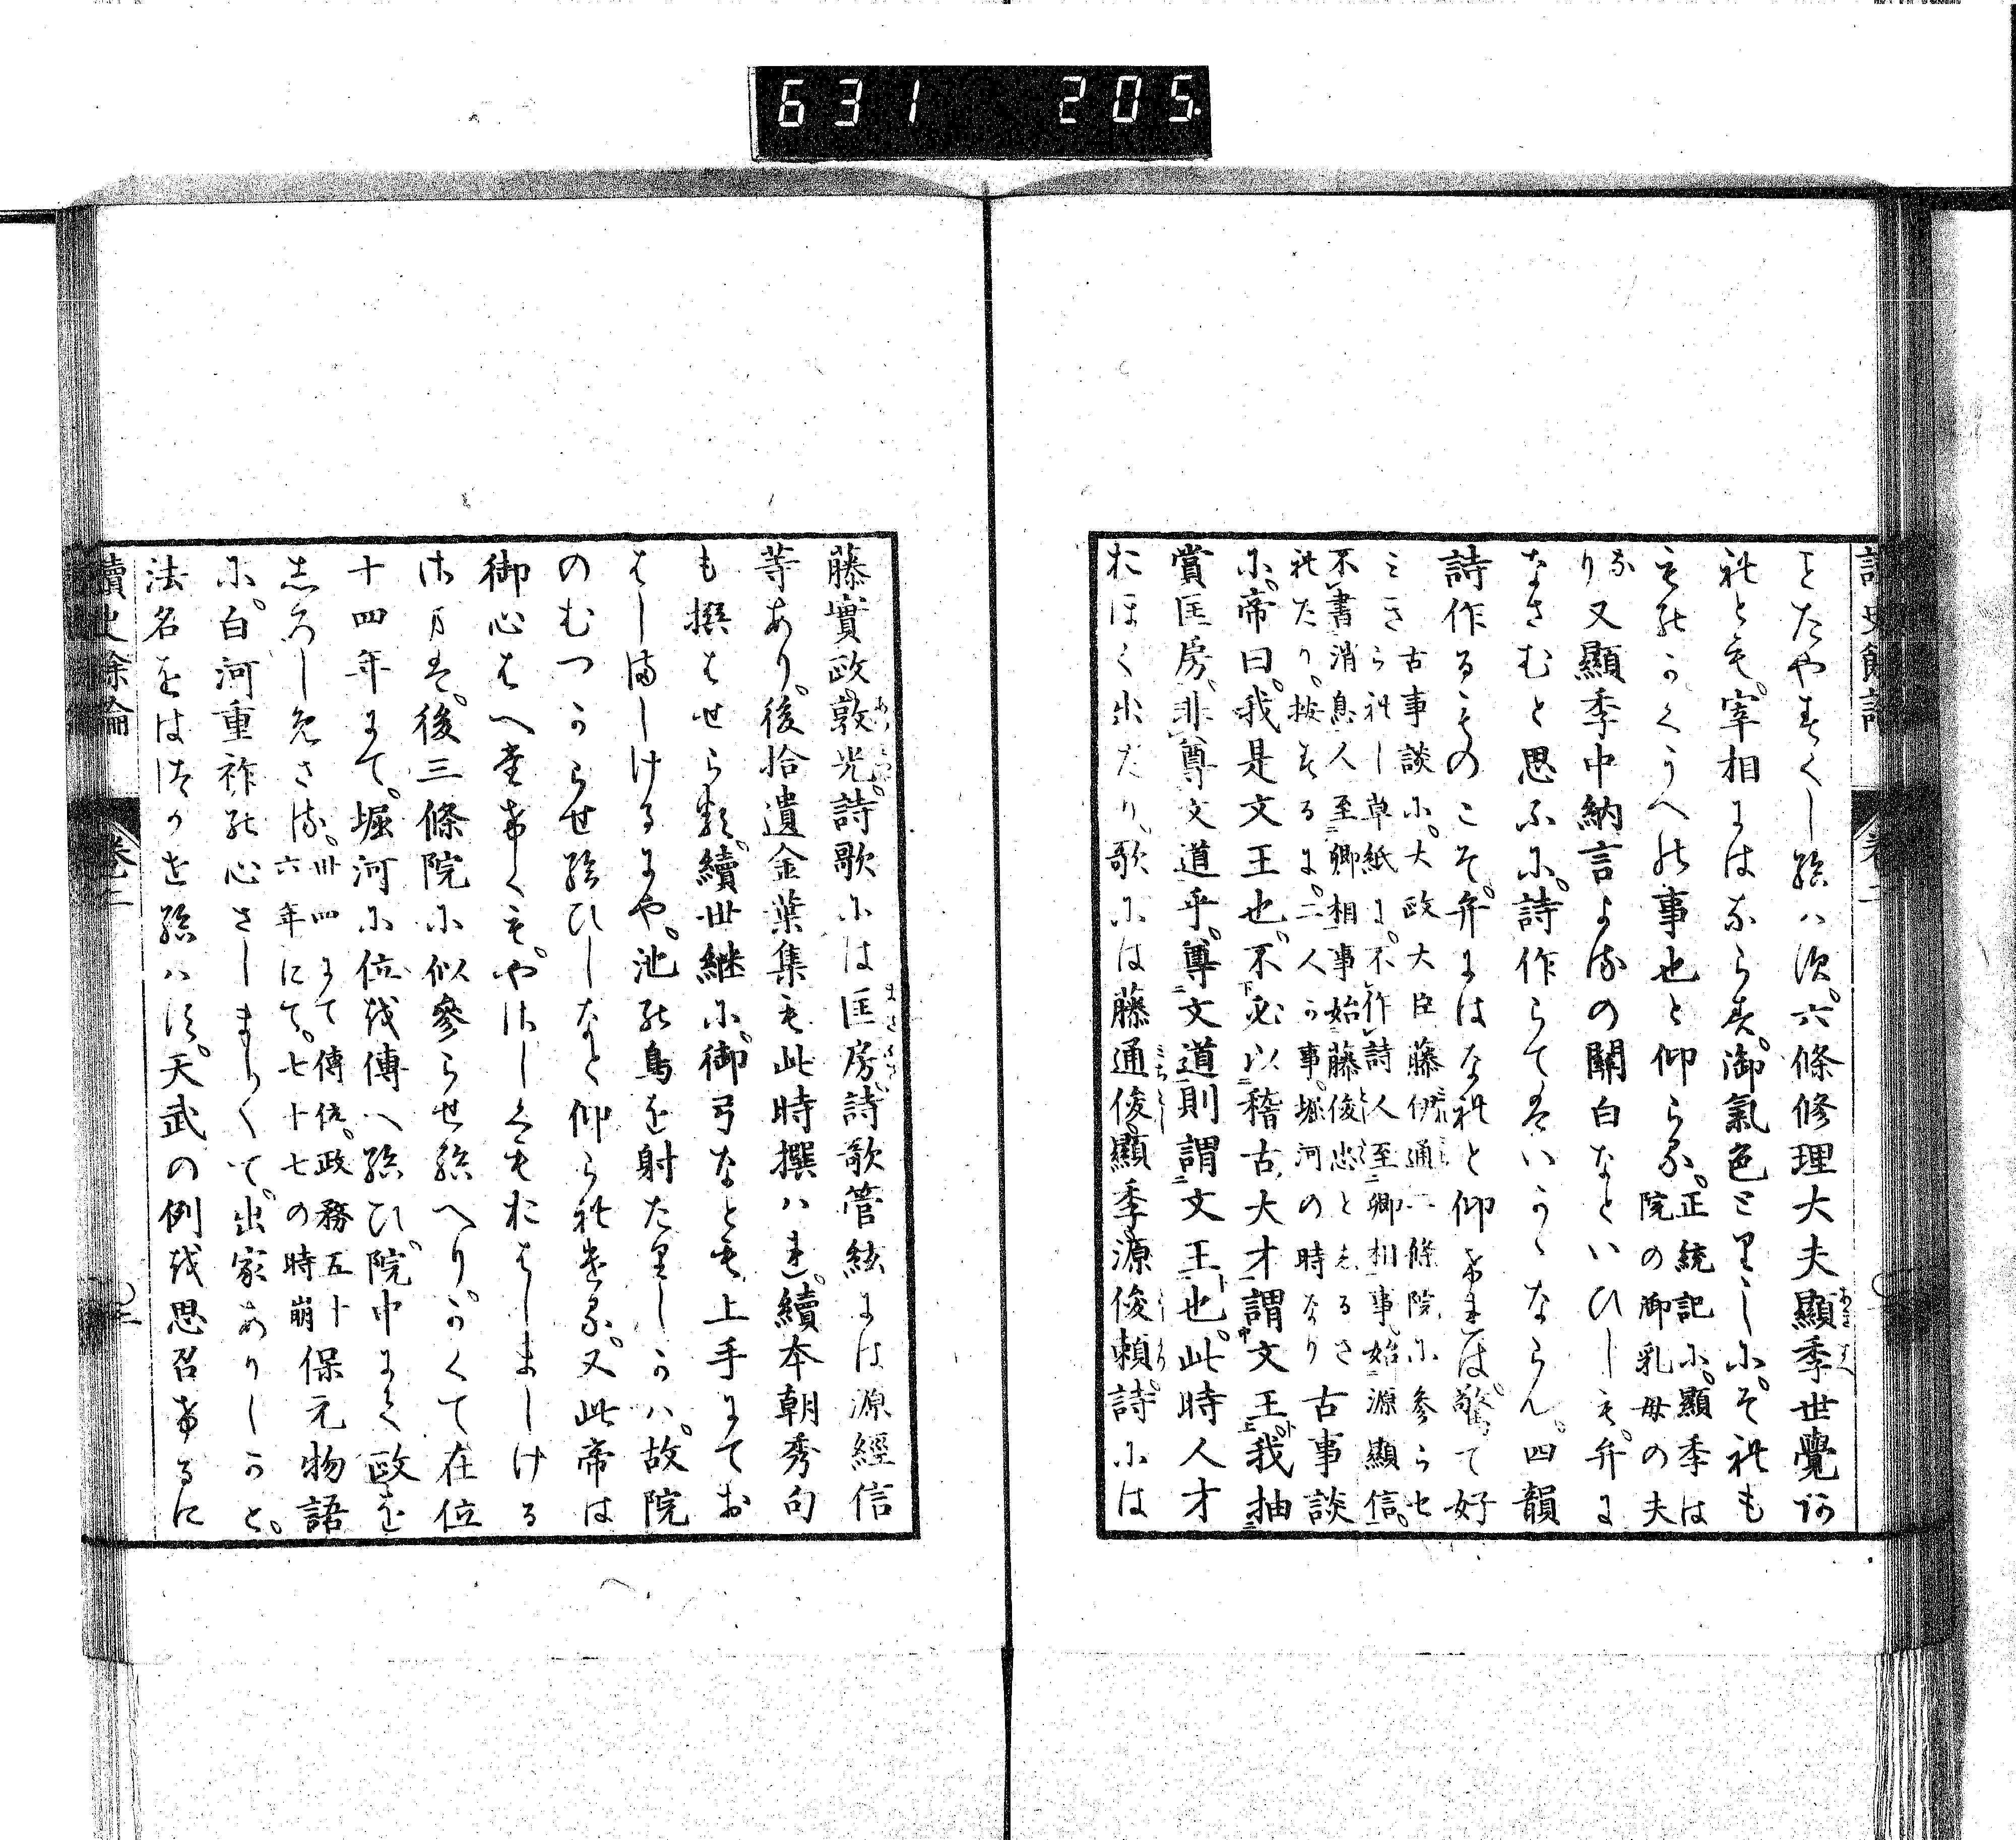 631 205.
をたやすくし給ハす。六條修理大夫顯季世覺切
れとも。宰相にはならす。御氣色とりしに。それも
ものかくうへの事也と仰らる。正統記に。顯季は院の御乳母の夫
なり又顯季中納言よるの關白なといひしも。弁に
なさむと思ふに。詩作らてはいかゝならん。四韻
詩作るものこそ。弁にはなれと仰けれは。驚て好
みき古事談に。大政大臣藤伊通二條院に參らせ
られし草紙に。不作詩人至卿相事始源顯信。
不書消息人至卿相事始藤俊忠としるさ
れたり。按するに。二人か事。堀河の時なり古事談
に。帝曰。我是文王也。不必以稽古大才謂文王。我抽
賞匡房。非尊文道乎。尊文道則謂文王也。此時人才
おほく出たり。歌には藤通俊。顯季。源俊頼。詩には
藤實政。敦光。詩歌には匡房。詩歌管絃には源經信
等あり。後拾遺金葉集も此時撰ハれ。續本朝秀句
も撰はせらる。續世継に。御弓なとも上手にてお
はしましけるにや。池の鳥を射たりしかハ。故院
のむつからせ給ひしなと仰られける。又此帝は
御心はへたけくも。やさしくもおはしましける
さまは。後三條院に似參らせ給へり。かくて在位
十四年にて。堀河に位を傳へ給ひ。院中にて政を
しろしめさる。卅四にて傳位。政務五十六年にて。七十七の時崩保元物語
に。白河重祚の心さしましくて。出家ありしかと。
法名をはつかせ給ハす。天武の例を思召けるに
讀史餘論 卷二